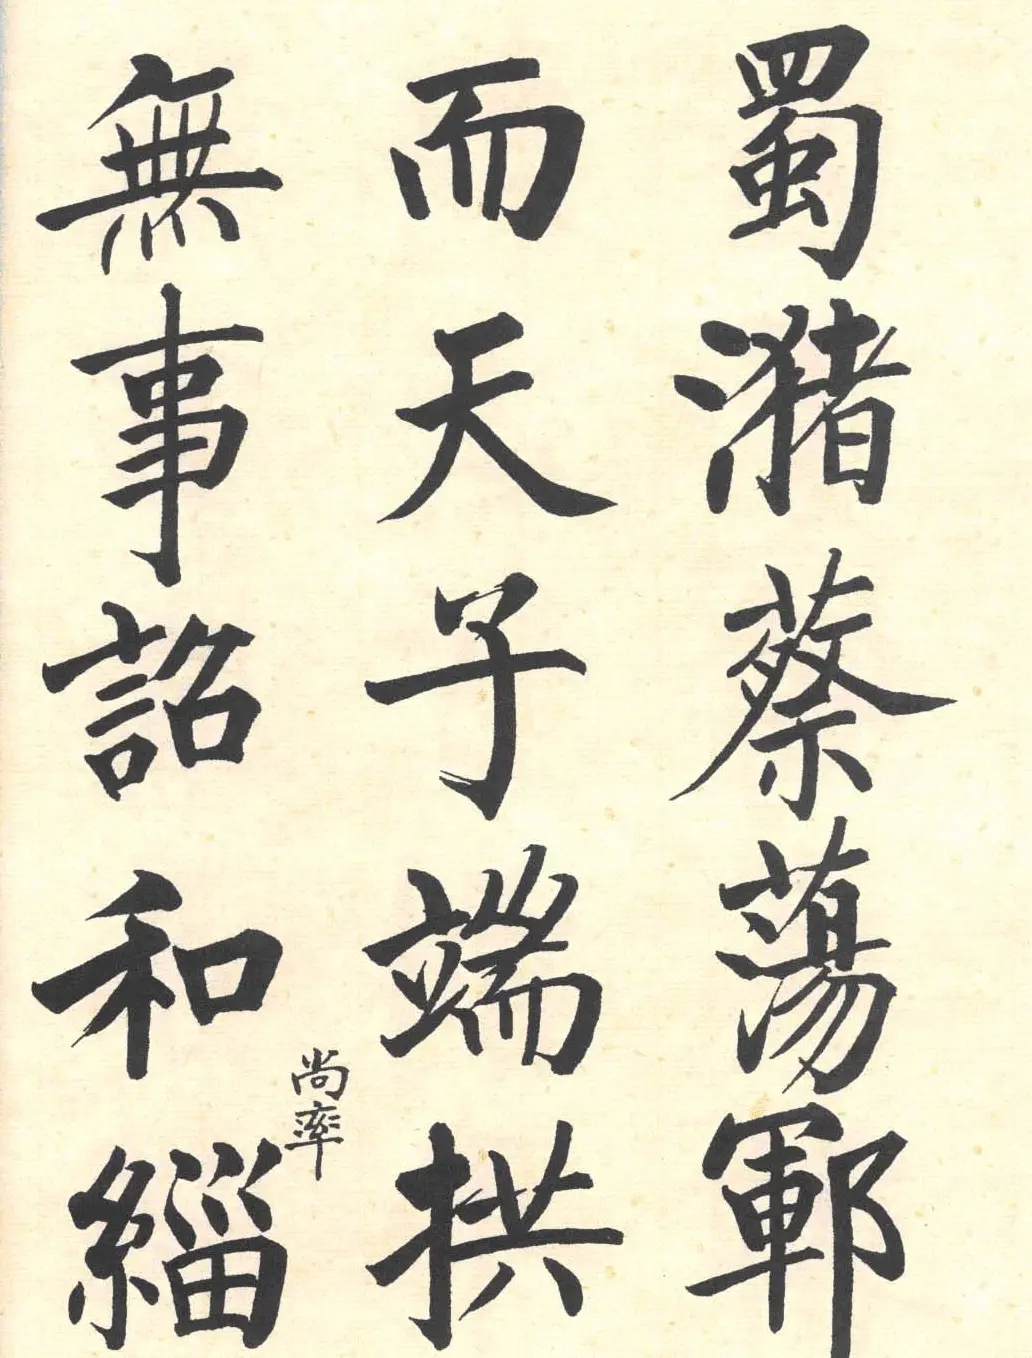 蜀瀦蔡蕩鄆
而天子端拱
無事詔和緇
尚率